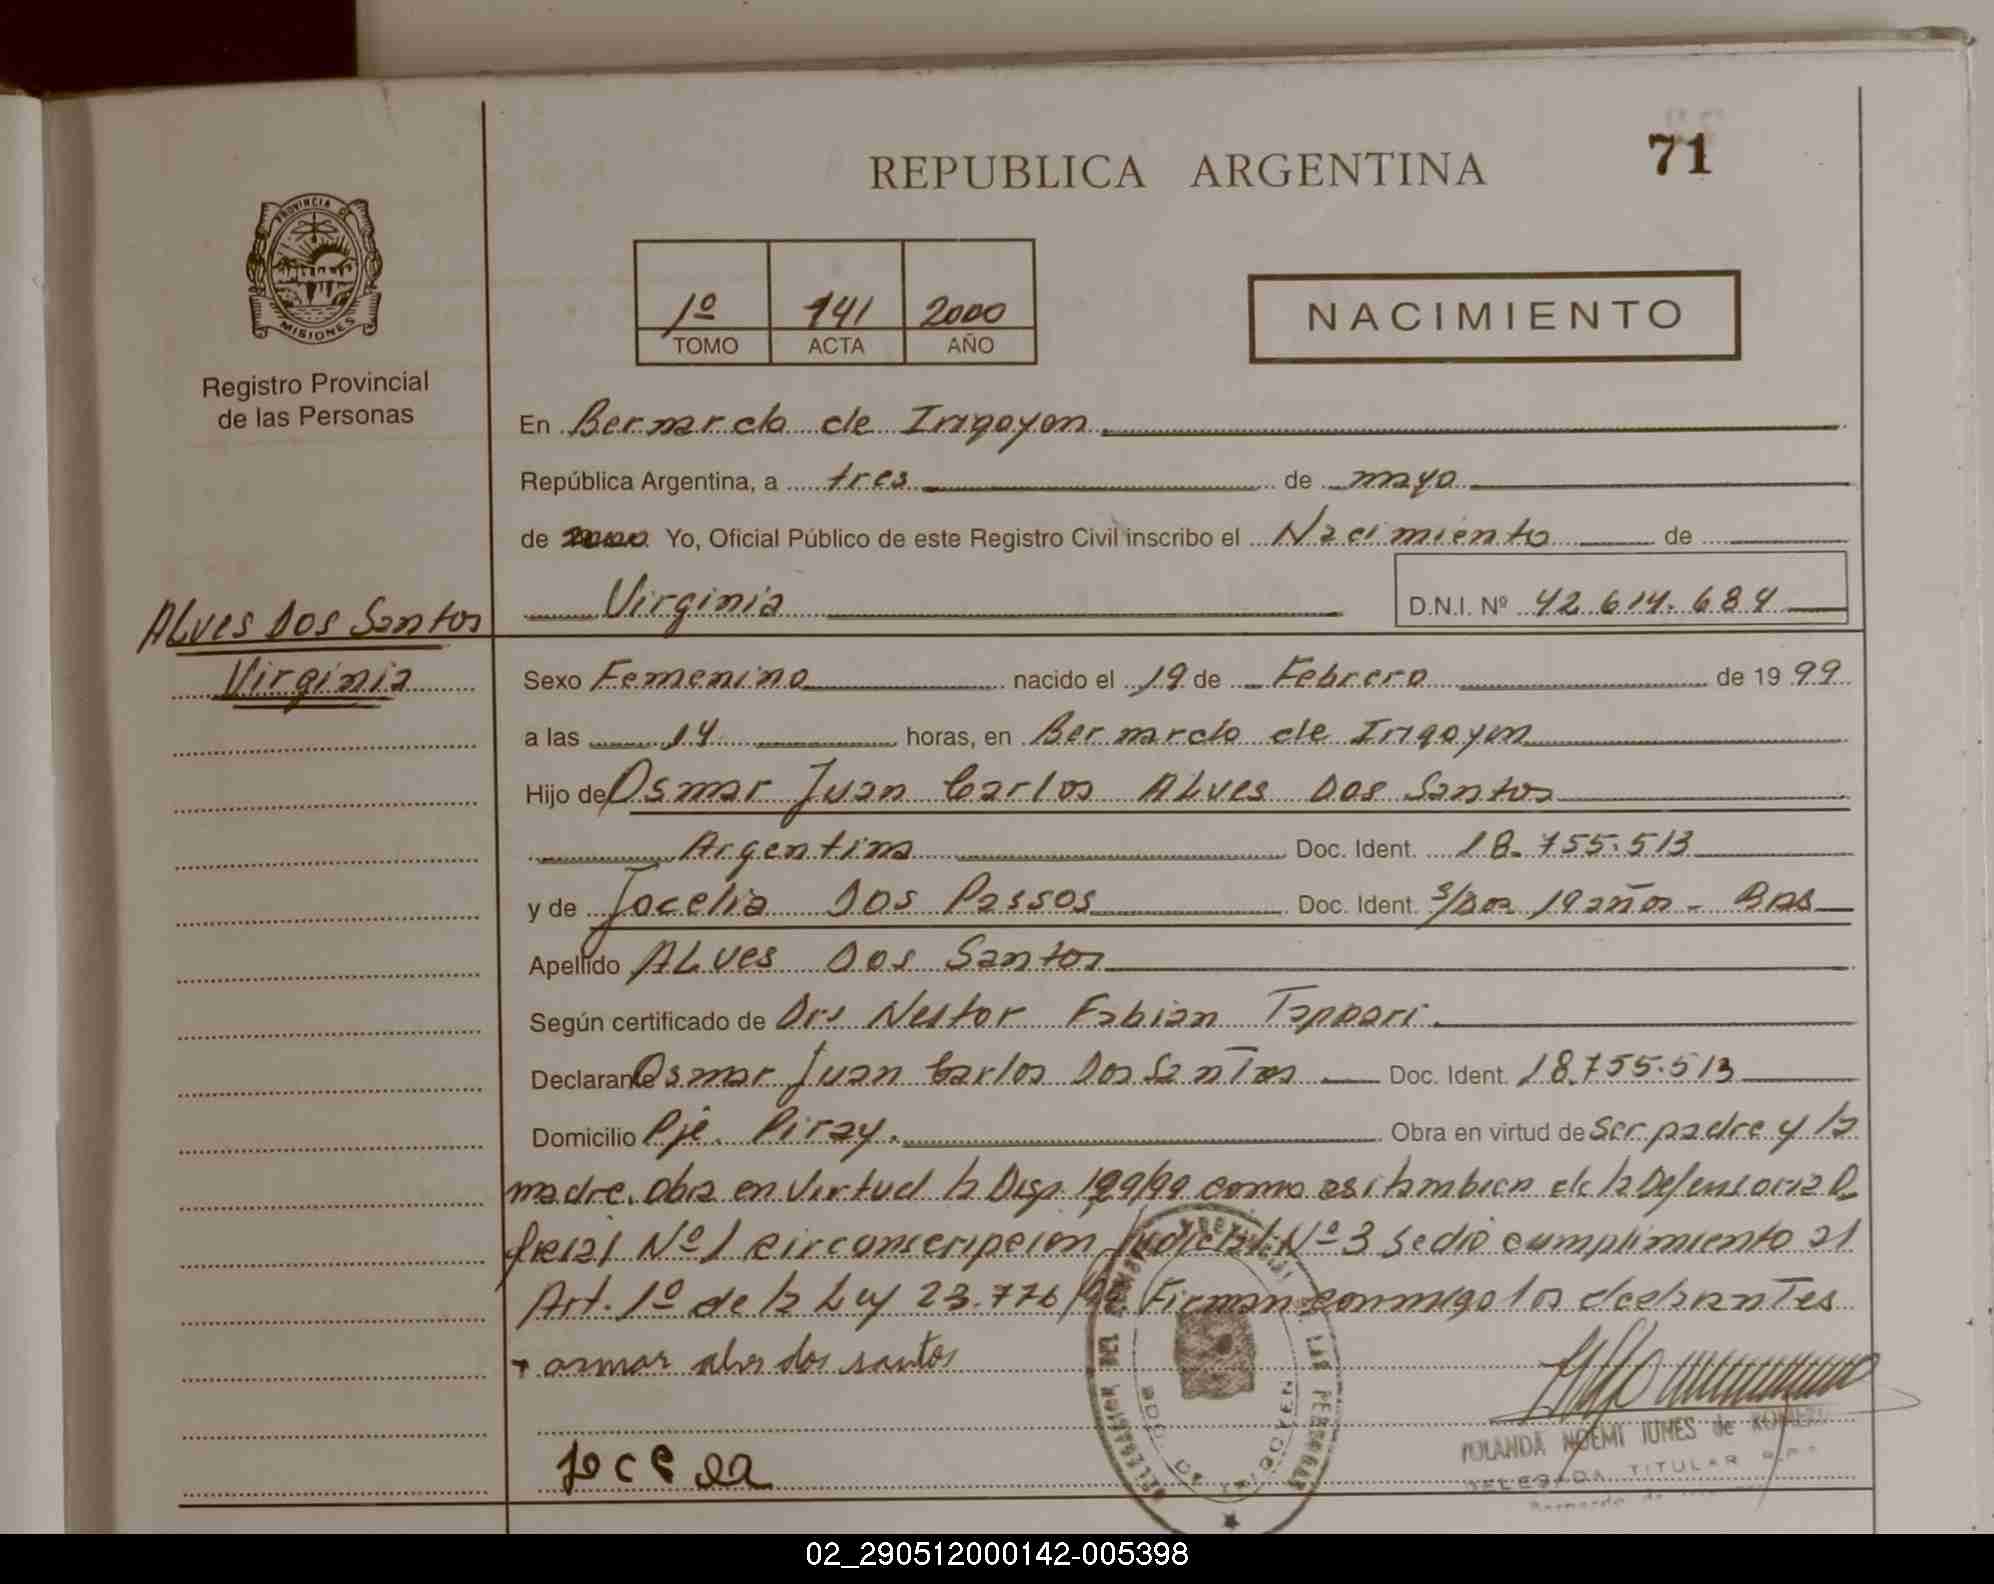 71
REPUBLICA ARGENTINA
PROVINCIA DE
MISIONES
Registro Provincial
de las Personas
1º 141 2000
TOMO ACTA AÑO
NACIMIENTO
En Bernardo de Irigoyen
República Argentina, a tres de mayo
de 2000 Yo, Oficial Público de este Registro Civil inscribo el Nacimiento de
Virginia D.N.I. Nº 42.614.684
ALves Dos Santos
Virginia
Sexo Femenino nacido el 19 de Febrero de 1999
a las 14 horas, en Bernardo de Irigoyen
Hijo de Osmar Juan Carlos ALves Dos Santos
Argentino Doc. Ident. 18.755.513
y de Jocelia Dos Passos Doc. Ident. s/Doc 19 años - BRAS
Apellido ALves Dos Santos
Según certificado de Dr. Nestor Fabian Tappari
Declarante Osmar Juan Carlos Dos Santos Doc. Ident. 18.755.513
Domicilio Pje. Piray. Obra en virtud de ser padre y la
madre. obra en virtud la Disp 199/99 como asi tambien de la Defensoria O
ficial Nº 1 circonscripcion Judicial Nº 3 se dió cumplimiento al
Art. 1º de la Ley 23.776/90. Firman conmigo los declarantes
osmar alves dos santos
DELEGACION DEL REGISTRO PROVINCIAL DE LAS PERSONAS
BDO. DE IRIGOYEN
YOLANDA NOEMI IUNES de ROMERO
DELEGADA TITULAR R.P.
Bernardo de
02_290512000142-005398